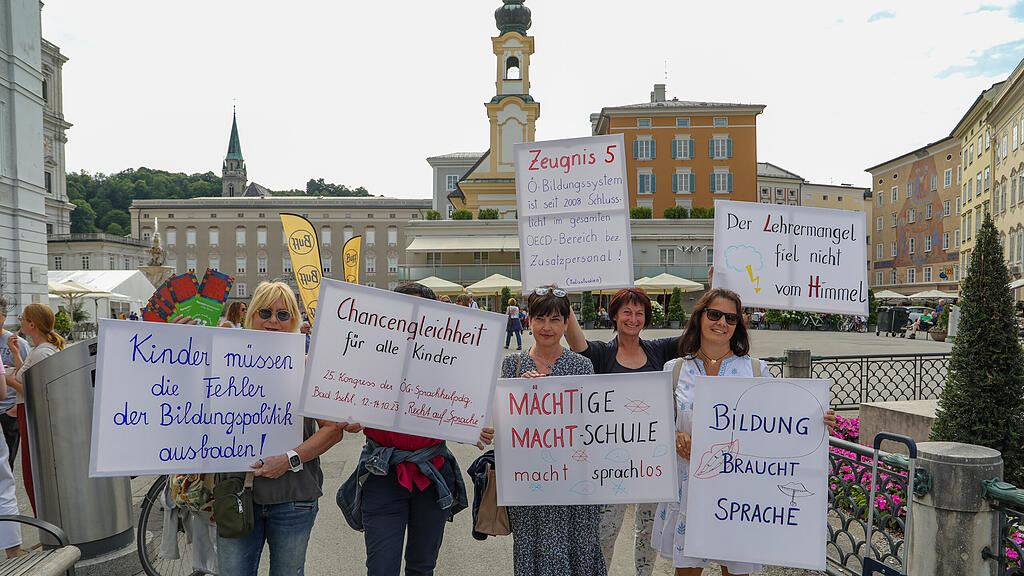 Butt
Butt
Kinder müssen
die Fehler
der Bildungspolitik
ausbaden!
Chancengleichheit
für alle Kinder
25. Kongress der ÖG-Sprachheilpdg.
Bad Ischl, 12.-14.10.23 „Recht auf Sprache"
Zeugnis 5
Ö-Bildungssystem
ist seit 2008 Schluss-
licht im gesamten
OECD-Bereich bez.
Zusatzpersonal!
Der Lehrermangel
fiel nicht
vom Himmel
MÄCHTIGE
MACHT-SCHULE
macht sprachlos
BILDUNG
BRAUCHT
SPRACHE